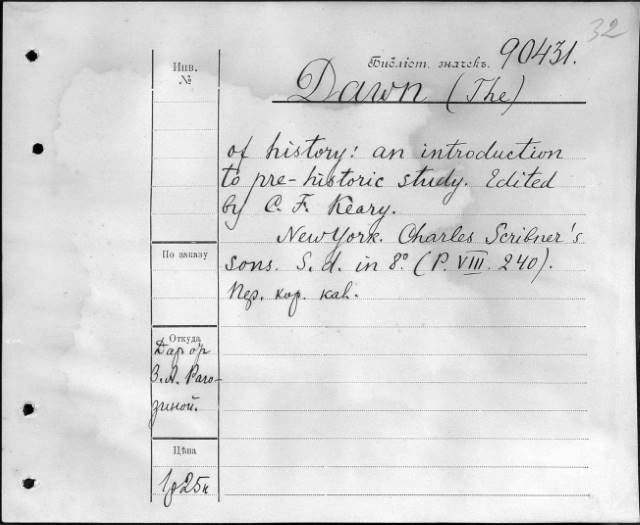 32
Библіот. значекъ. 90431.
Инв.
№
Dawn (The)
of history: an introduction
to pre-historic study. Edited
by C. F. Keary.
New York. Charles Scribner's
По заказу
sons. S. d. in 8° (P. VIII. 240).
Пер. кор. каl.
Откуда
Даръ
З. А. Раго-
зиной.
Цѣна
1р25к